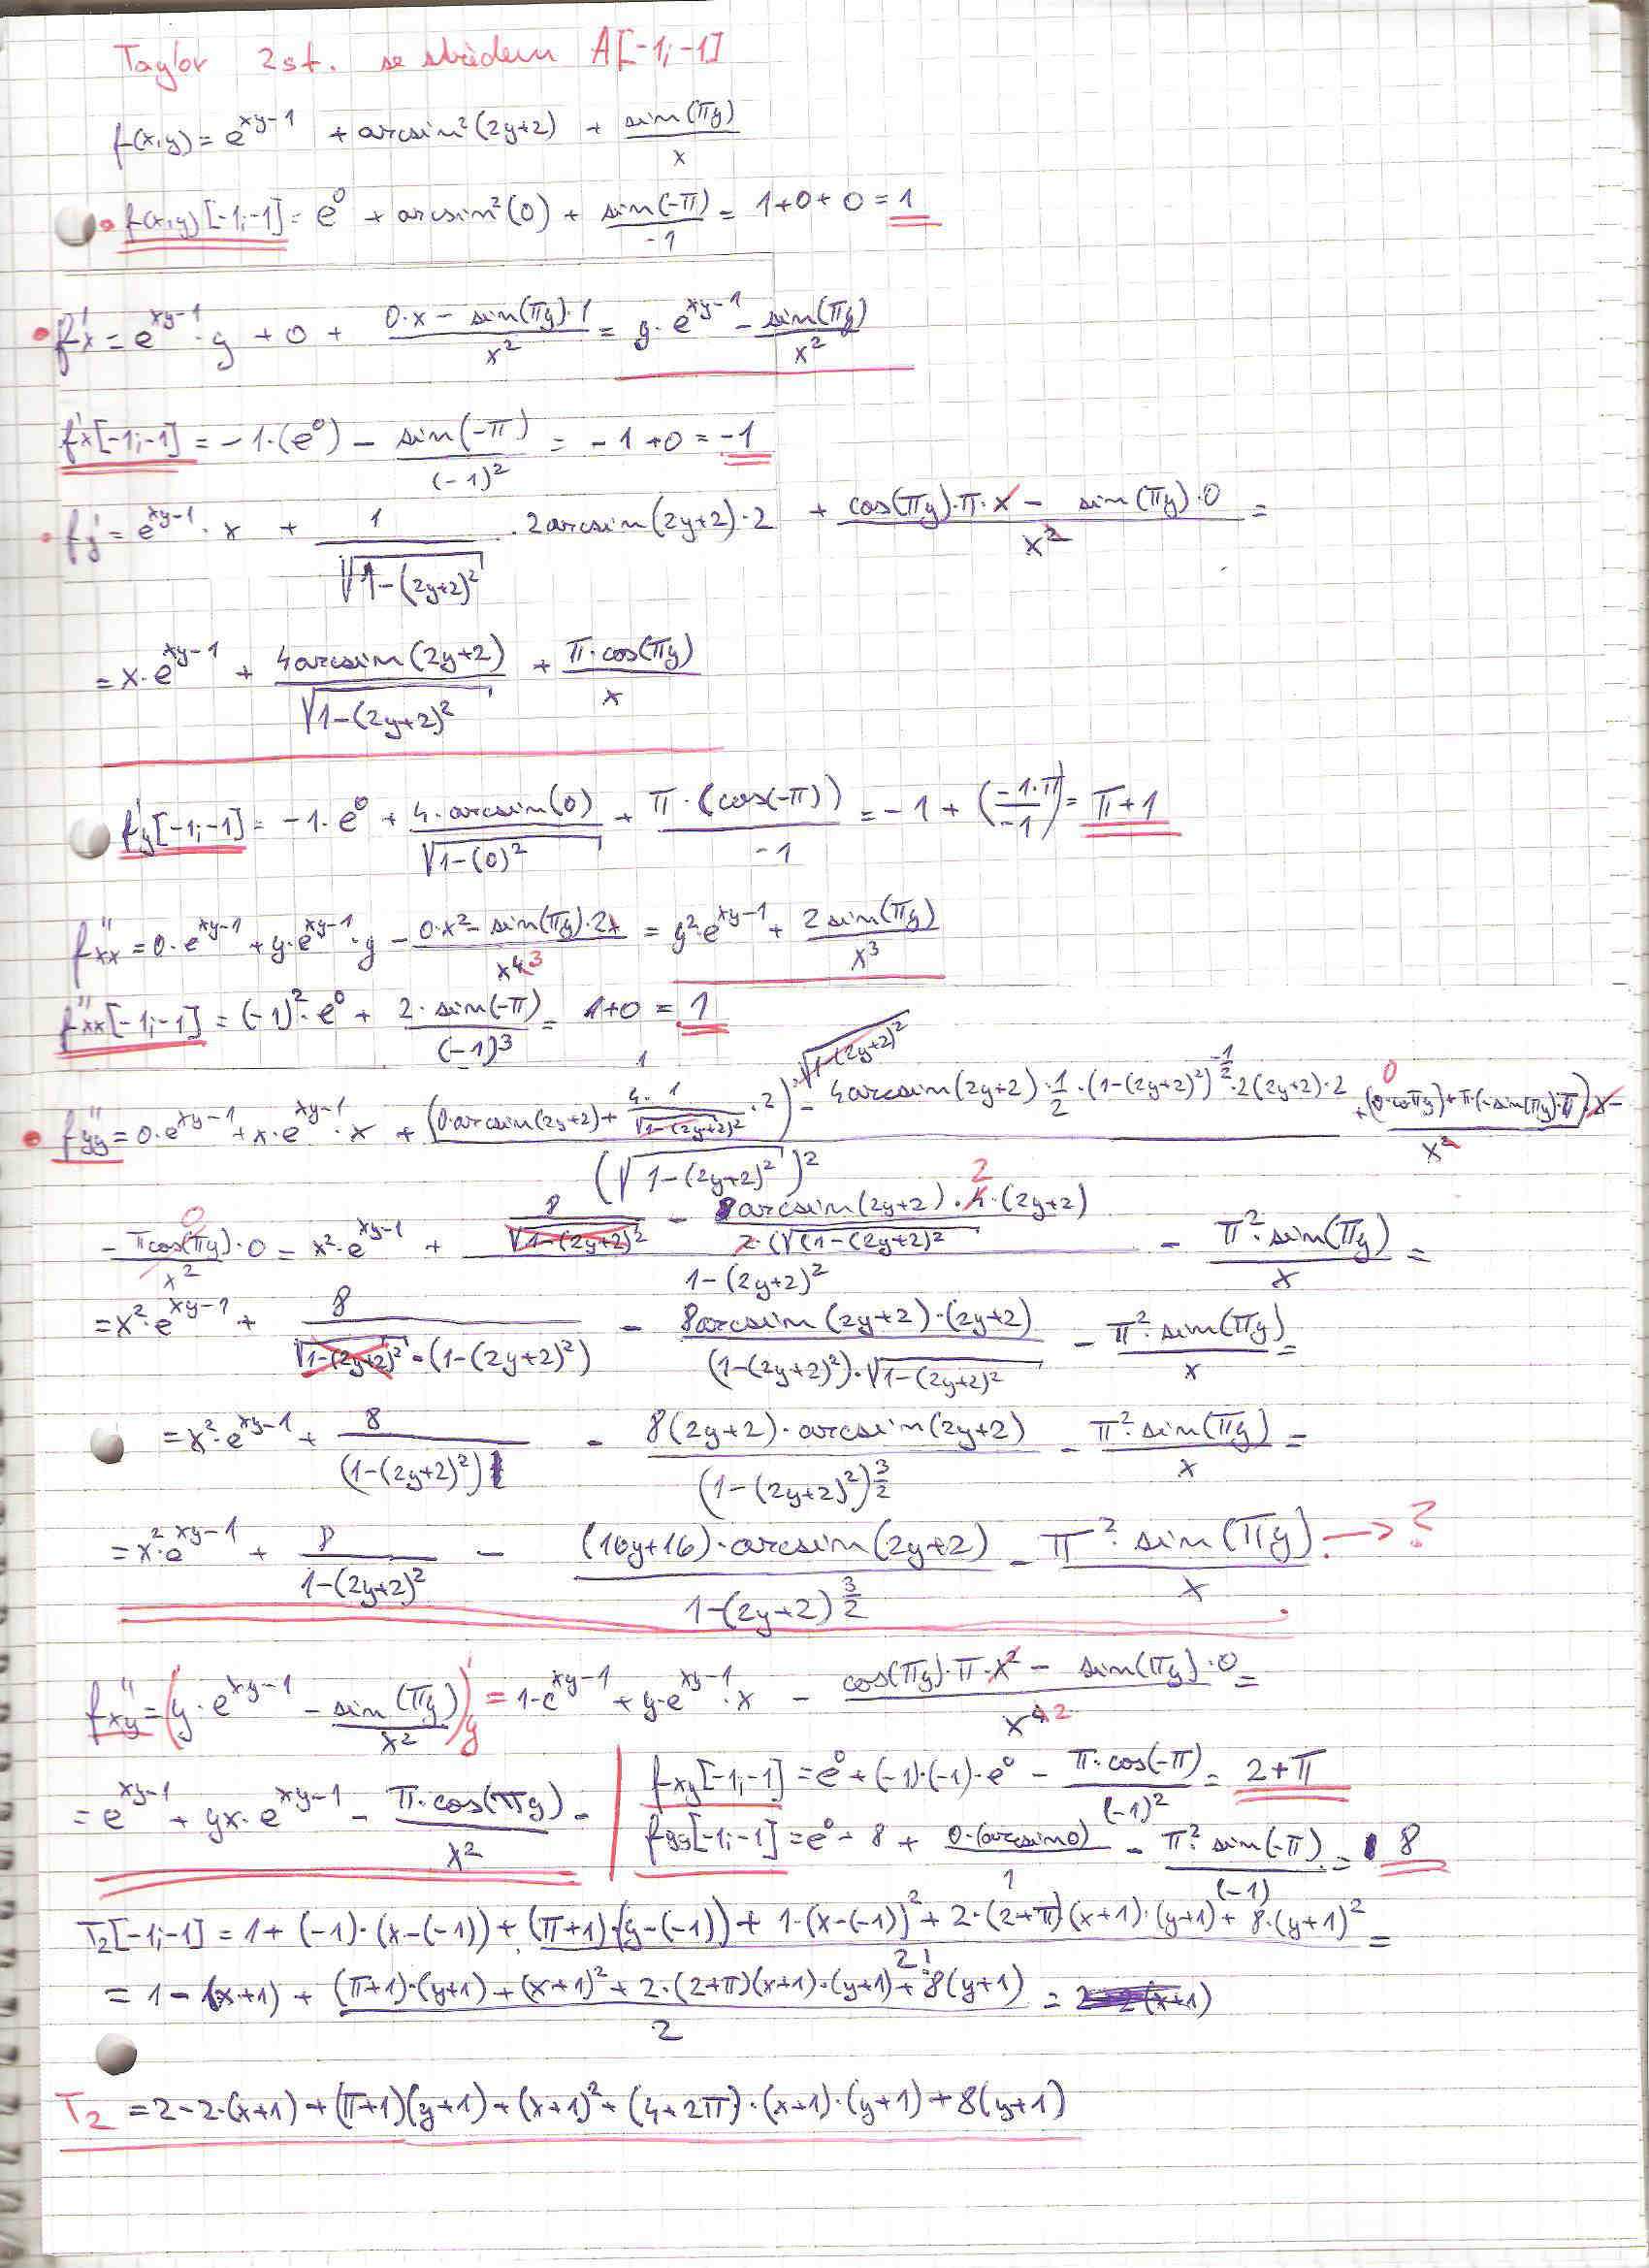 Taylor 2st. se středem A[-1;-1]
f(x,y) = e^{xy-1} + arcsin²(2y+2) + sin(πy)/x
f(x,y)[-1;-1] = e⁰ + arcsin²(0) + sin(-π)/-1 = 1+0+0 = 1
f'x = e^{xy-1}·y + 0 + (0·x - sin(πy)·1)/x² = y·e^{xy-1} - sin(πy)/x²
f'x[-1;-1] = -1·(e⁰) - sin(-π)/(-1)² = -1+0 = -1
f'y = e^{xy-1}·x + 1/√(1-(2y+2)²) · 2arcsin(2y+2)·2 + (cos(πy)·π·x - sin(πy)·0)/x² =
= x·e^{xy-1} + 4arcsin(2y+2)/√(1-(2y+2)²) + π·cos(πy)/x
f'y[-1;-1] = -1·e⁰ + 4·arcsin(0)/√(1-(0)²) + π·(cos(-π))/-1 = -1 + (-1·π/-1) = π+1
f''xx = 0·e^{xy-1} + y·e^{xy-1}·y - (0·x² - sin(πy)·2x)/x⁴ ³ = y²·e^{xy-1} + 2sin(πy)/x³
f''xx[-1;-1] = (-1)²·e⁰ + 2·sin(-π)/(-1)³ = 1+0 = 1
f''yy = 0·e^{xy-1} + x·e^{xy-1}·x + ((0·arcsin(2y+2) + 4·1/√(1-(2y+2)²)·2)·√(1-(2y+2)²) - 4arcsin(2y+2)·1/2·(1-(2y+2)²)^{-1/2}·2(2y+2)·2)/(√(1-(2y+2)²))² + ((0·cosπy)+π·(-sin(πy)·π)·x -/x²
- πcos(πy)·0/x² = x²·e^{xy-1} + (8/√(1-(2y+2)²) - 8arcsin(2y+2)·4·(2y+2)/2·(√(1-(2y+2)²))/(1-(2y+2)²) - π²·sin(πy)/x =
= x²·e^{xy-1} + 8/√(1-(2y+2)²)·(1-(2y+2)²) - 8arcsin(2y+2)·(2y+2)/(1-(2y+2)²)·√(1-(2y+2)²) - π²·sin(πy)/x =
= x²·e^{xy-1} + 8/(1-(2y+2)²) - 8(2y+2)·arcsin(2y+2)/(1-(2y+2)²)^{3/2} - π²·sin(πy)/x =
= x²·e^{xy-1} + 8/1-(2y+2)² - (16y+16)·arcsin(2y+2)/1-(2y+2)^{3/2} - π²·sin(πy)/x → ?
f''xy = (y·e^{xy-1} - sin(πy)/x²)'y = 1·e^{xy-1} + y·e^{xy-1}·x - (cos(πy)·π·x² - sin(πy)·0)/x⁴ ² =
= e^{xy-1} + yx·e^{xy-1} - π·cos(πy)/x² =
fxy[-1;-1] = e⁰ + (-1)·(-1)·e⁰ - π·cos(-π)/(-1)² = 2+π
fyy[-1;-1] = e⁰ + 8 + 0·(arcsin0)/1 - π²·sin(-π)/(-1) = 8
T₂[-1;-1] = 1 + (-1)·(x-(-1)) + (π+1)·(y-(-1)) + 1·(x-(-1))² + 2·(2+π)(x+1)·(y+1) + 8·(y+1)²/2! =
= 1 - (x+1) + (π+1)·(y+1) + (x+1)² + 2·(2+π)(x+1)·(y+1) + 8(y+1)/2 =
T₂ = 2 - 2·(x+1) + (π+1)(y+1) + (x+1)² + (4+2π)·(x+1)·(y+1) + 8(y+1)